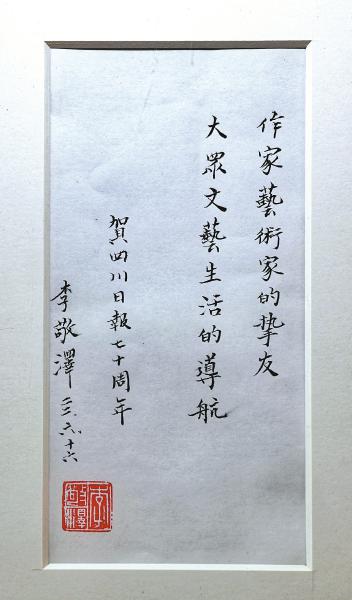 作家藝術家的挚友
大眾文藝生活的導航
賀四川日報七十周年
李敬澤 二二、六、十六